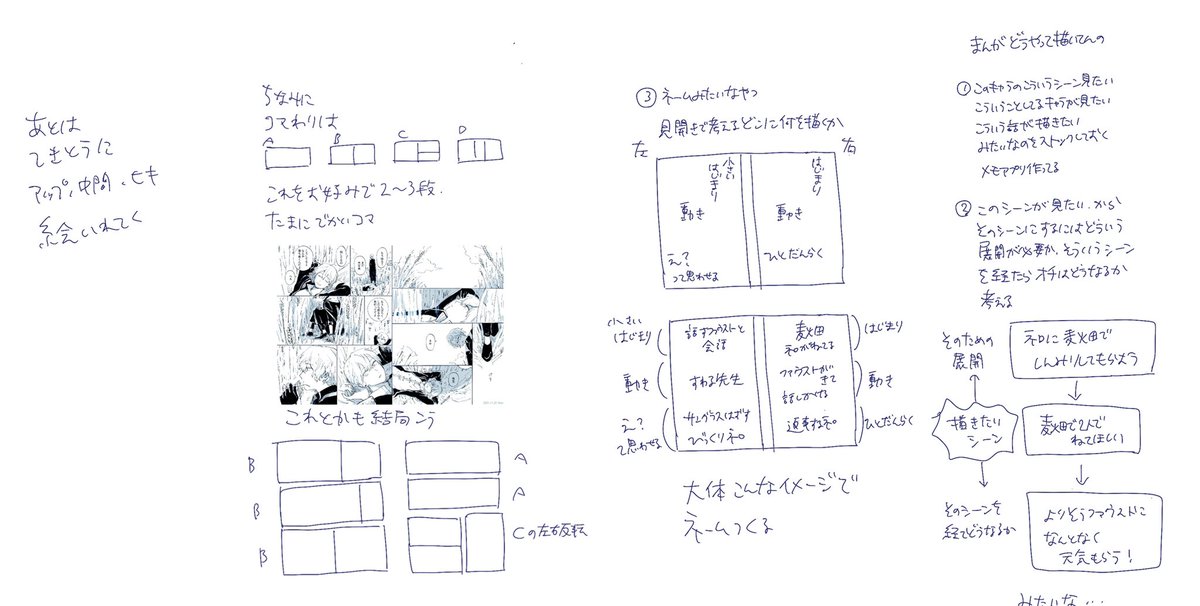 まんがどうやって描いてんの
① このキャラのこういうシーン見たい
こういうことしてるキャラが見たい
こういう話が描きたい
みたいなのをストックしておく
メモアプリ作ってる
② このシーンが見たい、から
そのシーンにするにはどういう
展開が必要か、そういうシーン
を経たらオチはどうなるか
考える
そのための
展開
描きたい
シーン
そのシーンを
経てどうなるか
ネロに麦畑で
しんみりしてもらおう
麦畑で2人で
ねてほしい
よりそうファウストに
なんとなく
元気もらう!
みたいな…
③ ネームみたいなやつ
見開きで考えるどこに何を描くか
左
右
はじまり
動き
ひとだんらく
小さい
はじまり
動き
え?
って思わせる
はじまり
動き
ひとだんらく
麦畑
ファウストがきて
話しかける
返事するネロ
話すファウストと
会話
すわる先生
サングラスはずす
びっくりネロ
小さい
はじまり
動き
え?
て思わせる
大体こんなイメージで
ネームつくる
ちなみに
コマわりは
A
B
C
D
これをお好みで2〜3段.
たまにでかいコマ
これとかも結局こう
A
A
Cの左右反転
B
B
B
あとは
てきとうに
アップ、中間、ヒキ
絵いれてく